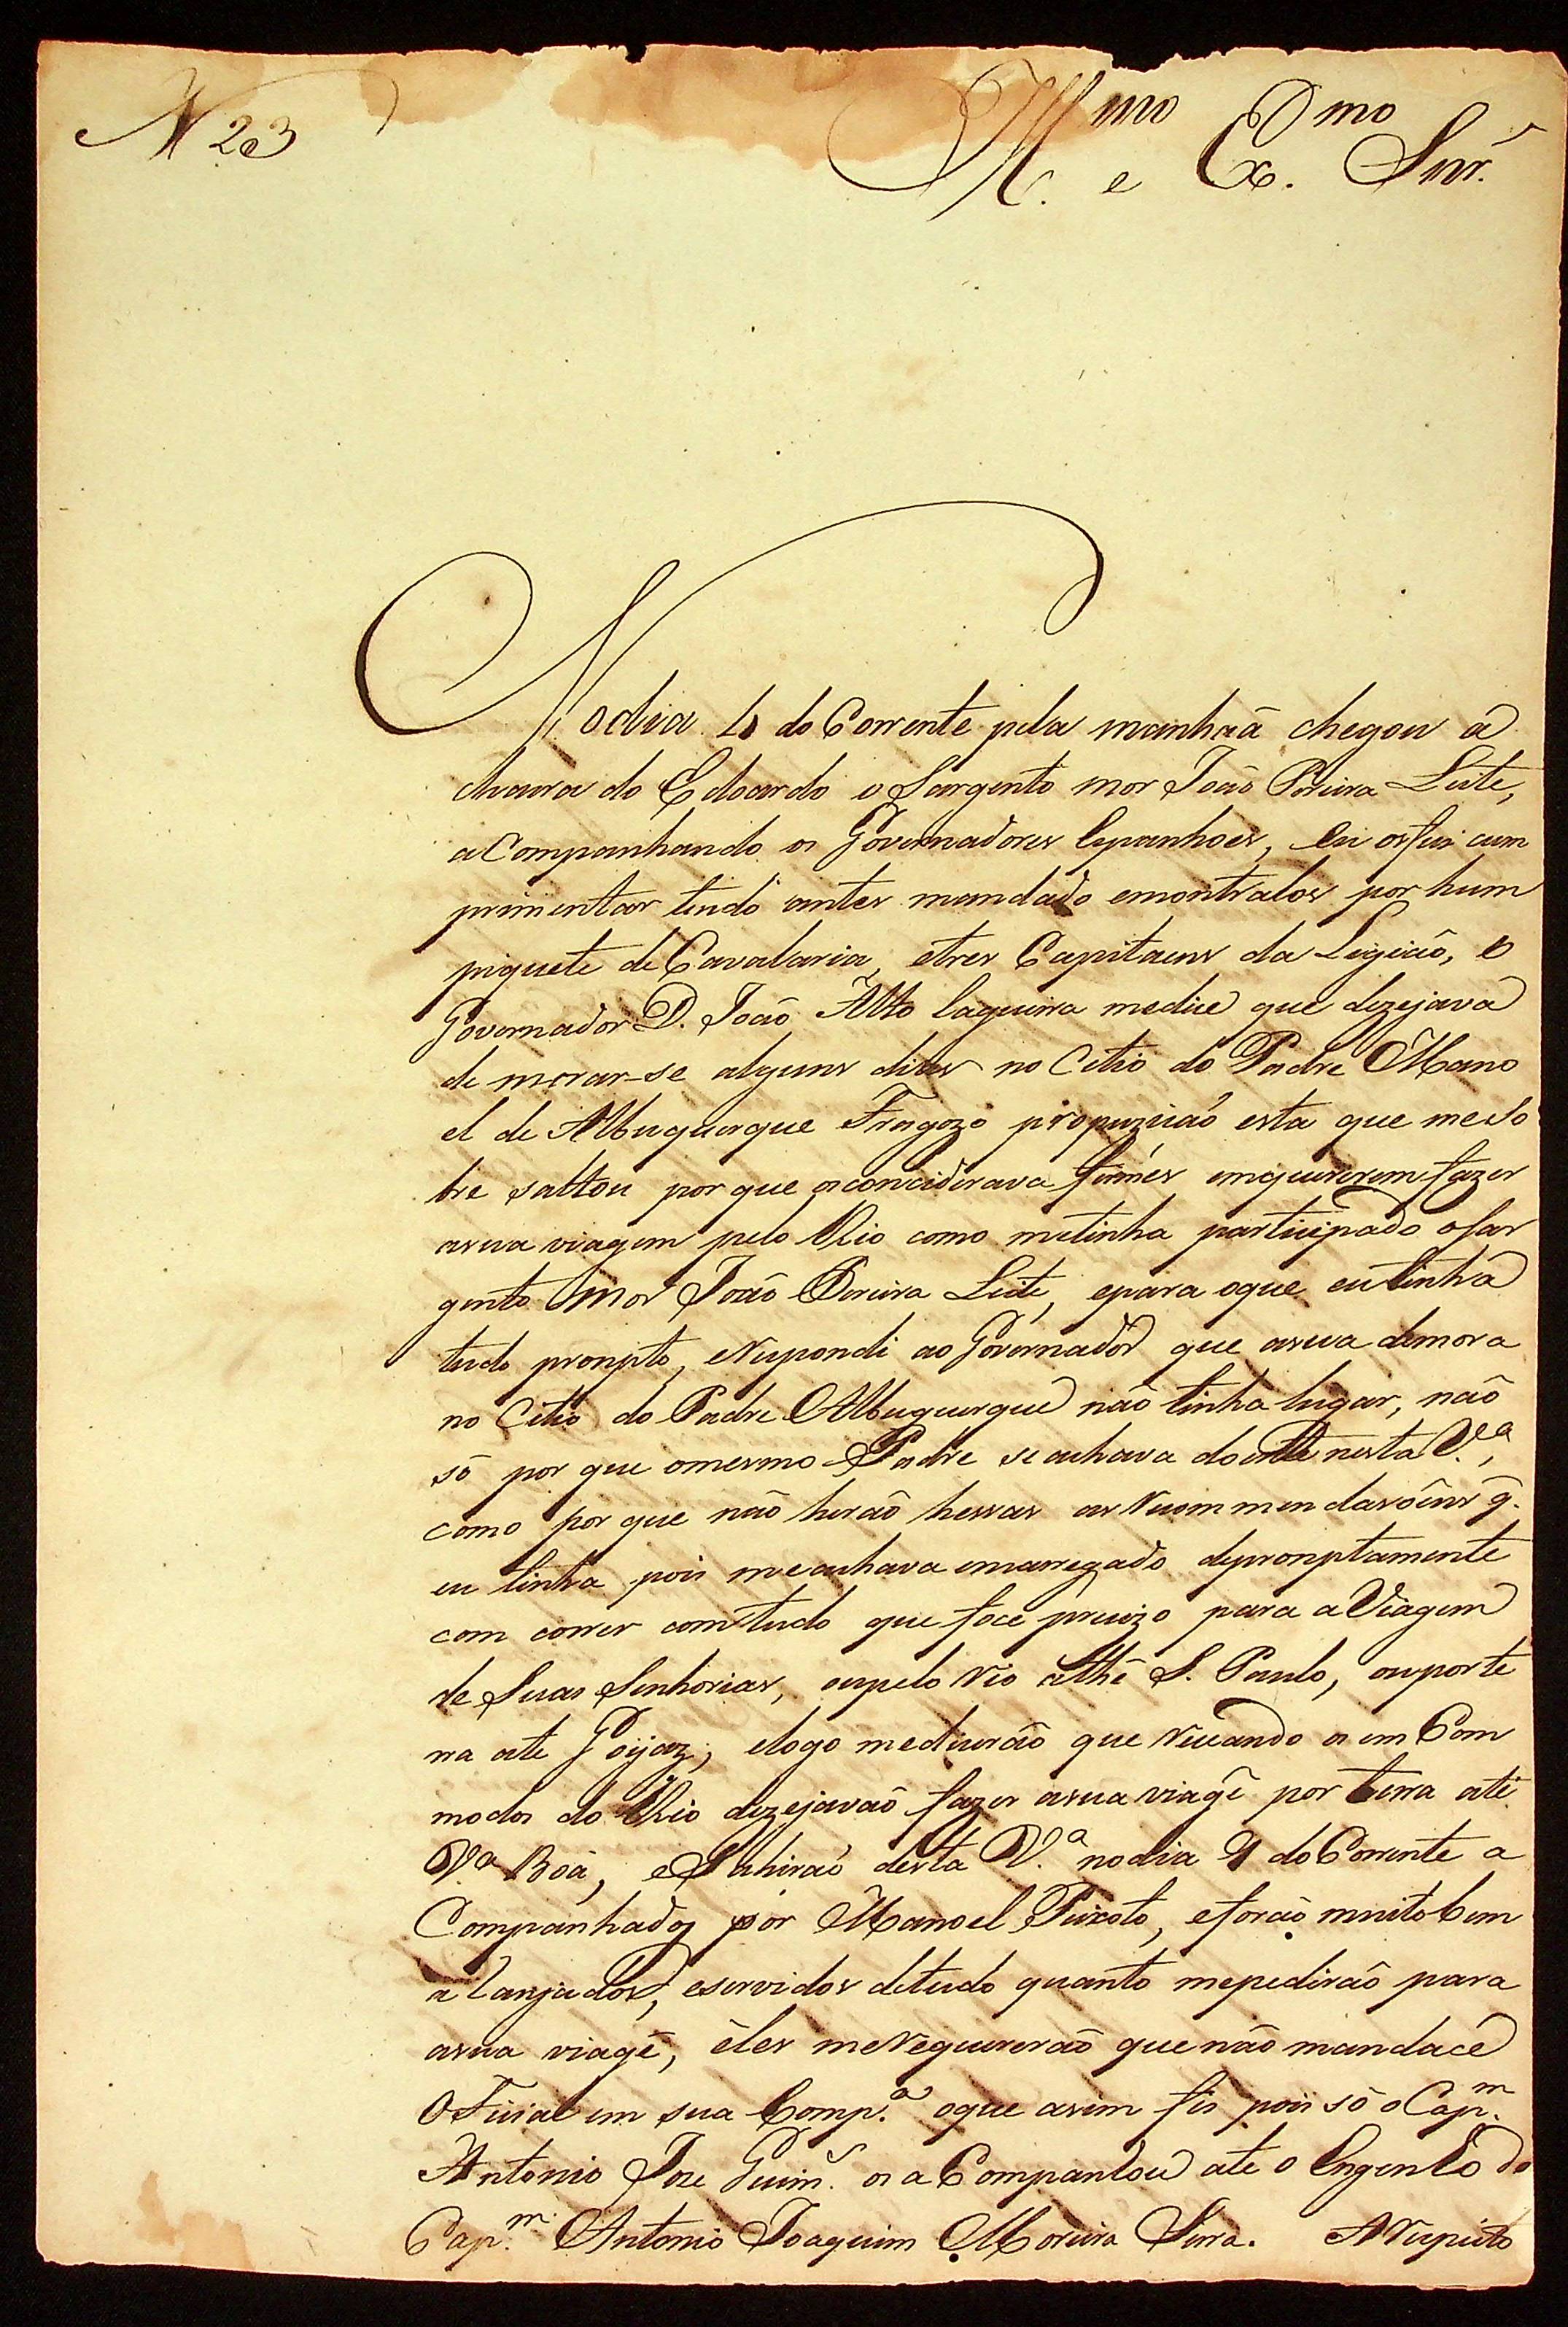 N 23
Ill.mo e Ex.mo Snr.
No dia 4 do Corrente pela manhaã chegou a
chacra do Edoardo o Sargento mor João Pereira Leite,
aCompanhando os Governadores Espanhoes, eu osfui cum
primentar tendo antes mandado emontralos por hum
piquete deCavalaria, etres Capitaens da Legião, o
Governador D. João Alto laguirra medice que dezejava
de morar-se alguns dias no Citio do Padre Mano
el de Albuquerque Fragozo propuzicão esta que meso
bre saltou por que osconciderava firmes emquererem fazer
asua viagem pelo Rio como metinha participado osar
gento Mor João Pereira Leite, epara oque eu tinha
tudo prompto, eRespondi ao Governador que asua demora
no Citio do Padre Albuquerque não tinha lugar, não
só por que omesmo Padre se achava doente nesta V.ª,
como por que não herão hessas as Recommendasoens q̃.
eu tinha pois meachava emcarregado depromptamente
com correr comtudo que foce precizo para aViagem
de Suas Senhorias, oupelo rio athé S. Paulo, ouporte
rra ate Goijaz; elogo medicerão que Receando os em Com
modos do Rio dezejavão fazer asua viagẽ por terra até
V.ª Boa, eSahirão desta V.ª nodia 9 doCorrente a
Companhados por Manoel Peixoto, eforão muitobem
aranjados, eservidos detudo quanto mepedirão para
asua viagẽ, éles meRequererão que não mandace
OFicial em sua Comp.ª oque asim fis pois só o Cap.m
Antonio Joze Guim.s os aCompanhou ate o Engenho do
Cap.m Antonio Joaquim Moreira Serra. ARespeito